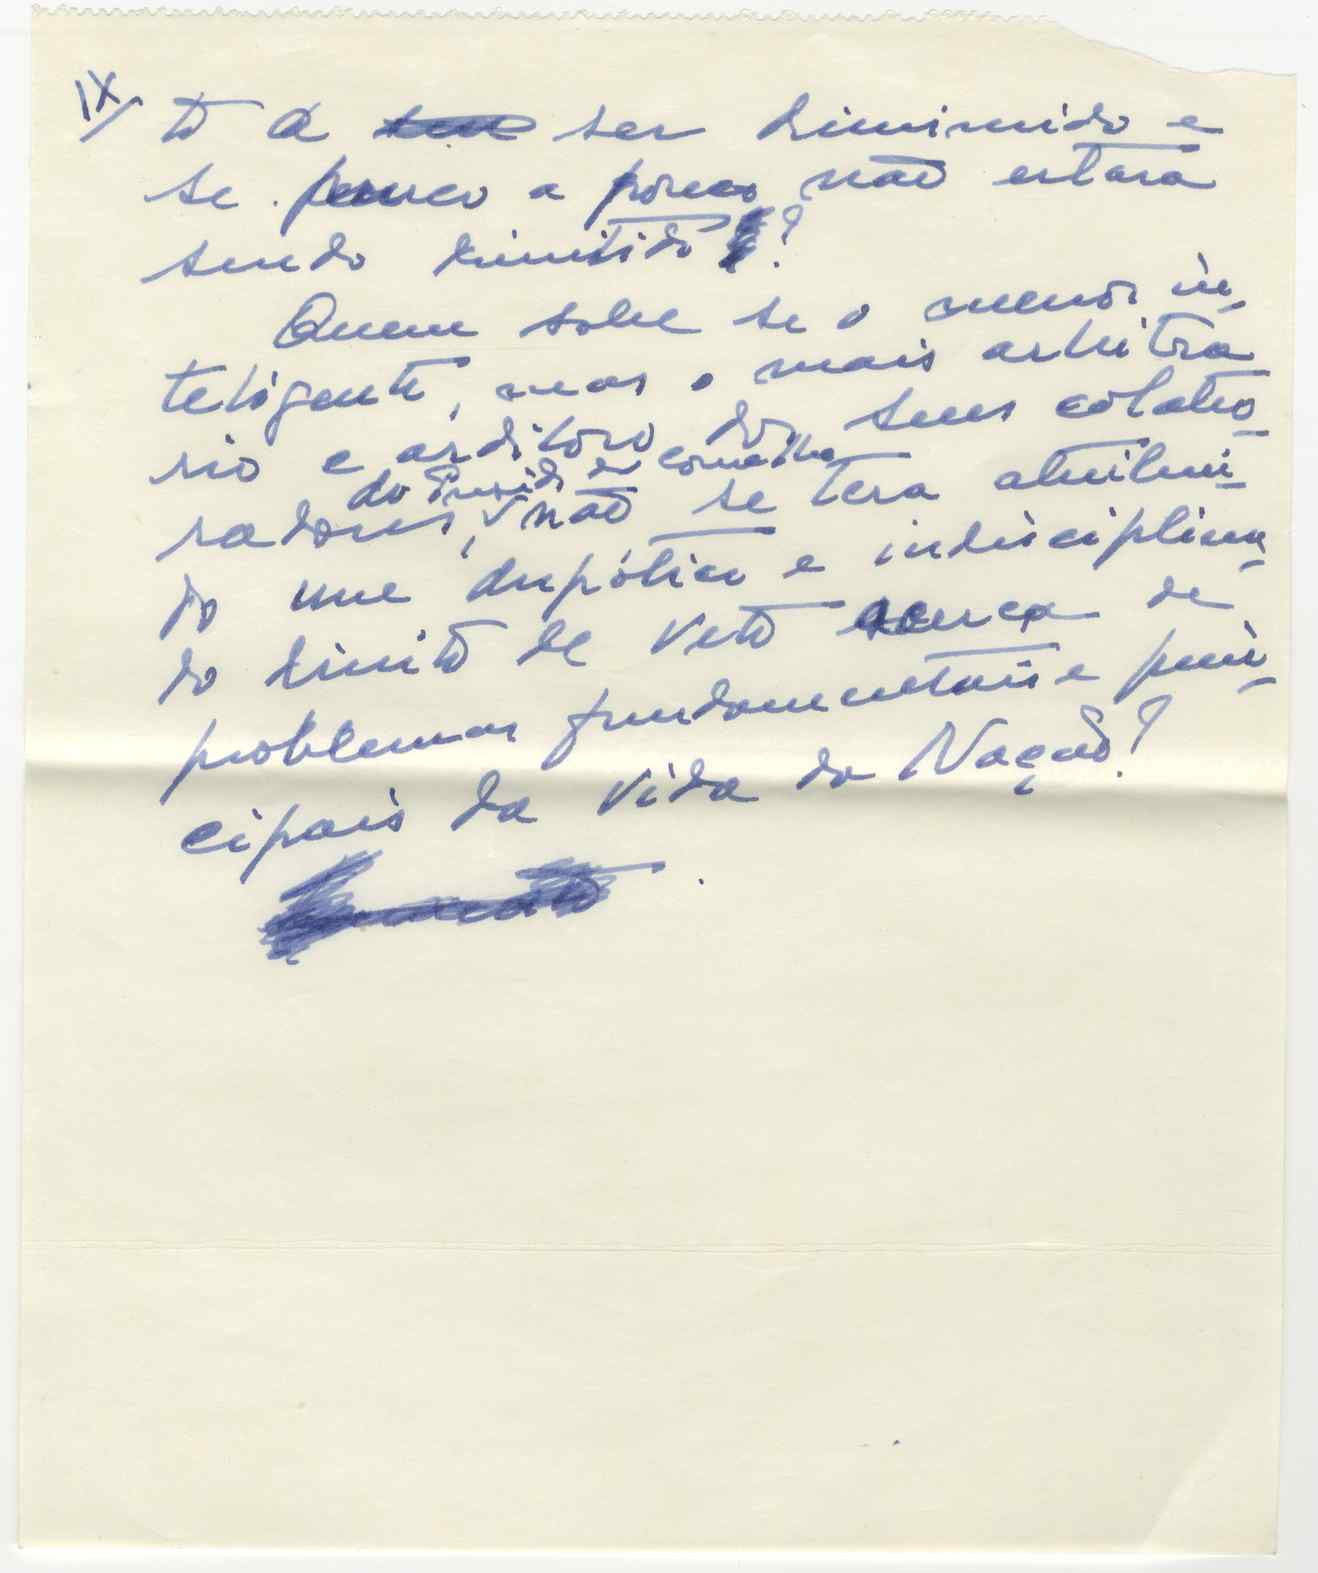 IX/
to a ser diminuido e
se pouco a pouco não estará
sendo dimitido?
Quem sabe se o menos in-
teligente, mas o mais arbitrá
rio e ardiloso dos seus colabo-
do Presid do Conselho
radores, não se terá atribui-
do um despótico e indisciplina-
do direito de veto acerca de
problemas fundamentais e prin-
cipais da vida da Nação?